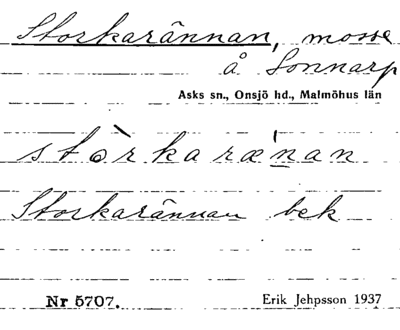 Storkarännan, mosse
å Sonnarp
Asks sn., Onsjö hd., Malmöhus län
stòrkaræ̀nan
Storkarännan bek
Nr 5707. Erik Jehpsson 1937